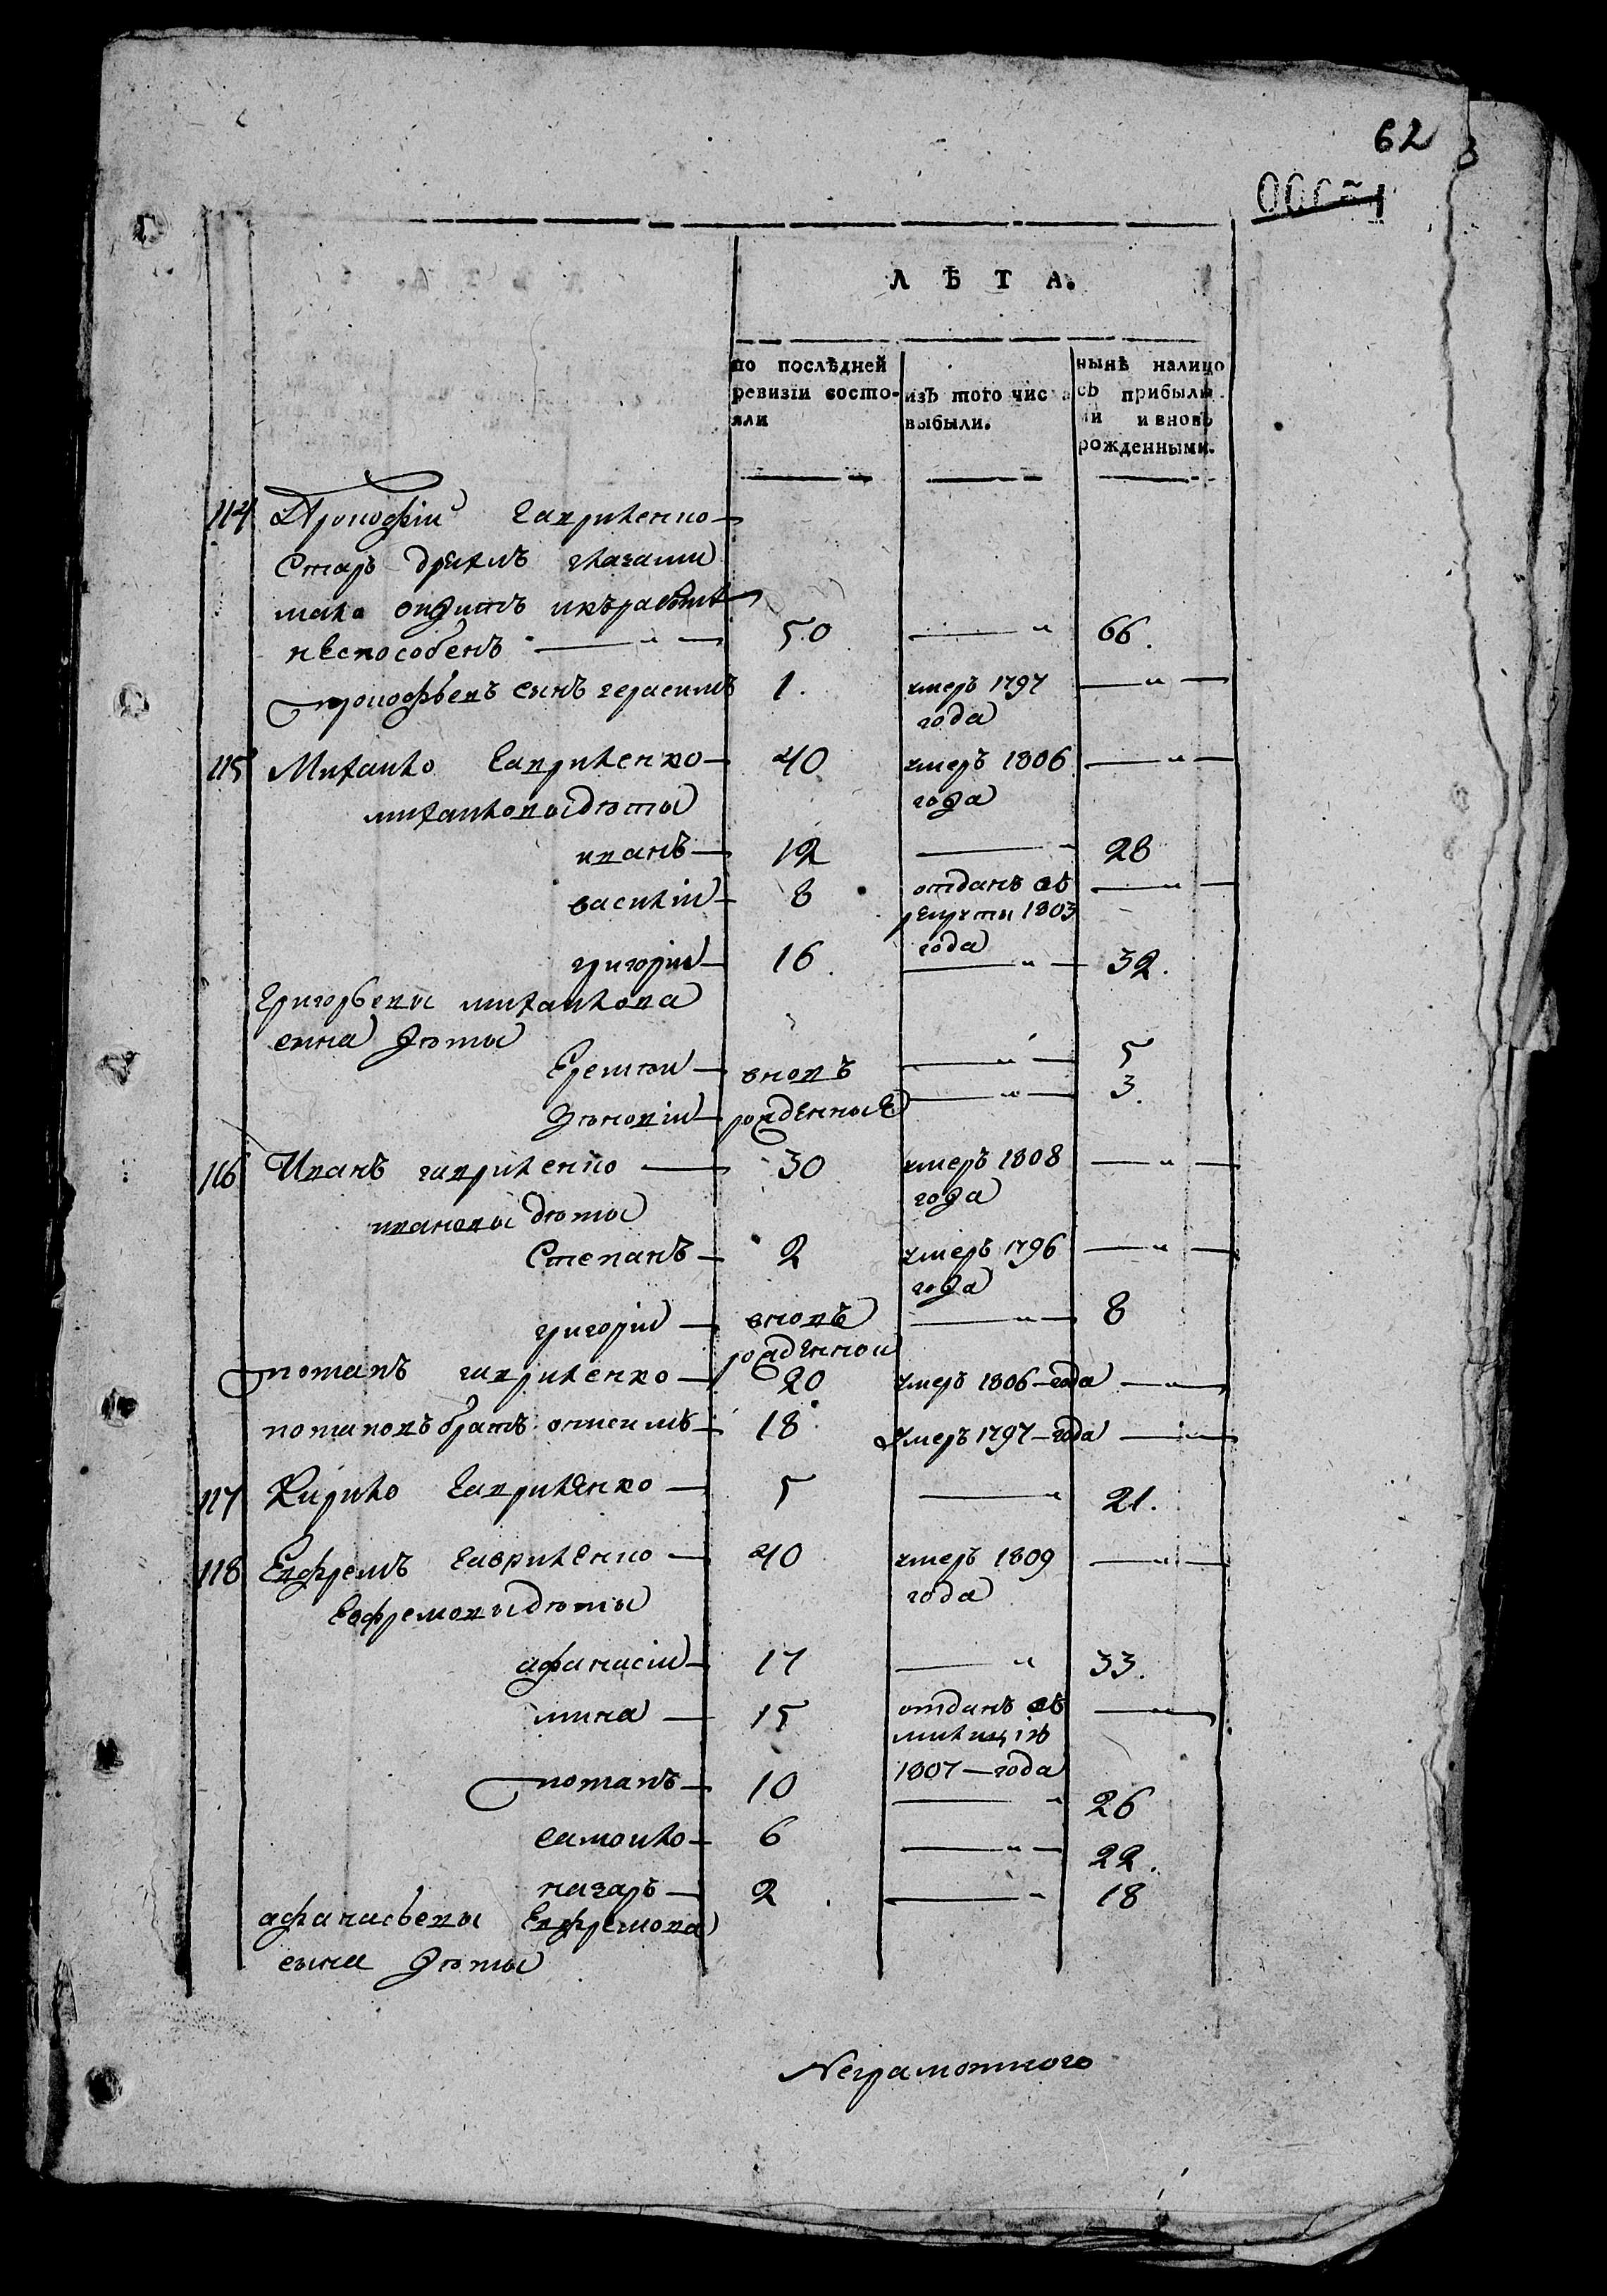 62
ЛѢТА.
по послѣдней ревизіи состояли
изъ того числа выбыли.
нынѣ налицо съ прибылыми и вновь рожденными.
114 Прокофіи Гавриленко
старъ дряхлъ глазами
мало видитъ икъработѣ
неспособенъ — 50 — 66.
прокофьевъ сынъ герасимъ 1. умеръ 1797 года —
115 Михаило Гавриленко — 40 умеръ 1806 года —
михаиловы дѣти
иванъ — 12 — 28
василіи — 8 отданъ въ рекруты 1803 года —
григоріи — 16. — 32.
Григорьевы михаилова
сына дѣти
Еремѣи — вновь — 5
Зѣновіи — рожденные — 3.
116 Иванъ гавриленко — 30 умеръ 1808 года —
ивановы дѣти
Степанъ — 2 умеръ 1796 года —
григоріи — вновь рожденнои — 8
потапъ гавриленко — 20 умеръ 1806 — года —
потаповъ братъ 18 умеръ 1797 — года —
117 Кирило Гавриленко — 5 — 21.
118 Евфремъ Гавриленко — 40 умеръ 1809 года —
Евфремовы дѣти
афанасіи — 17 — 33.
мина — 15 отданъ въ милицію 1807 — года —
потапъ — 10 — 26
самоило — 6 — 22.
назаръ — 2 — 18
афанасьевы Евфремова
сына дѣти
Неграмотного